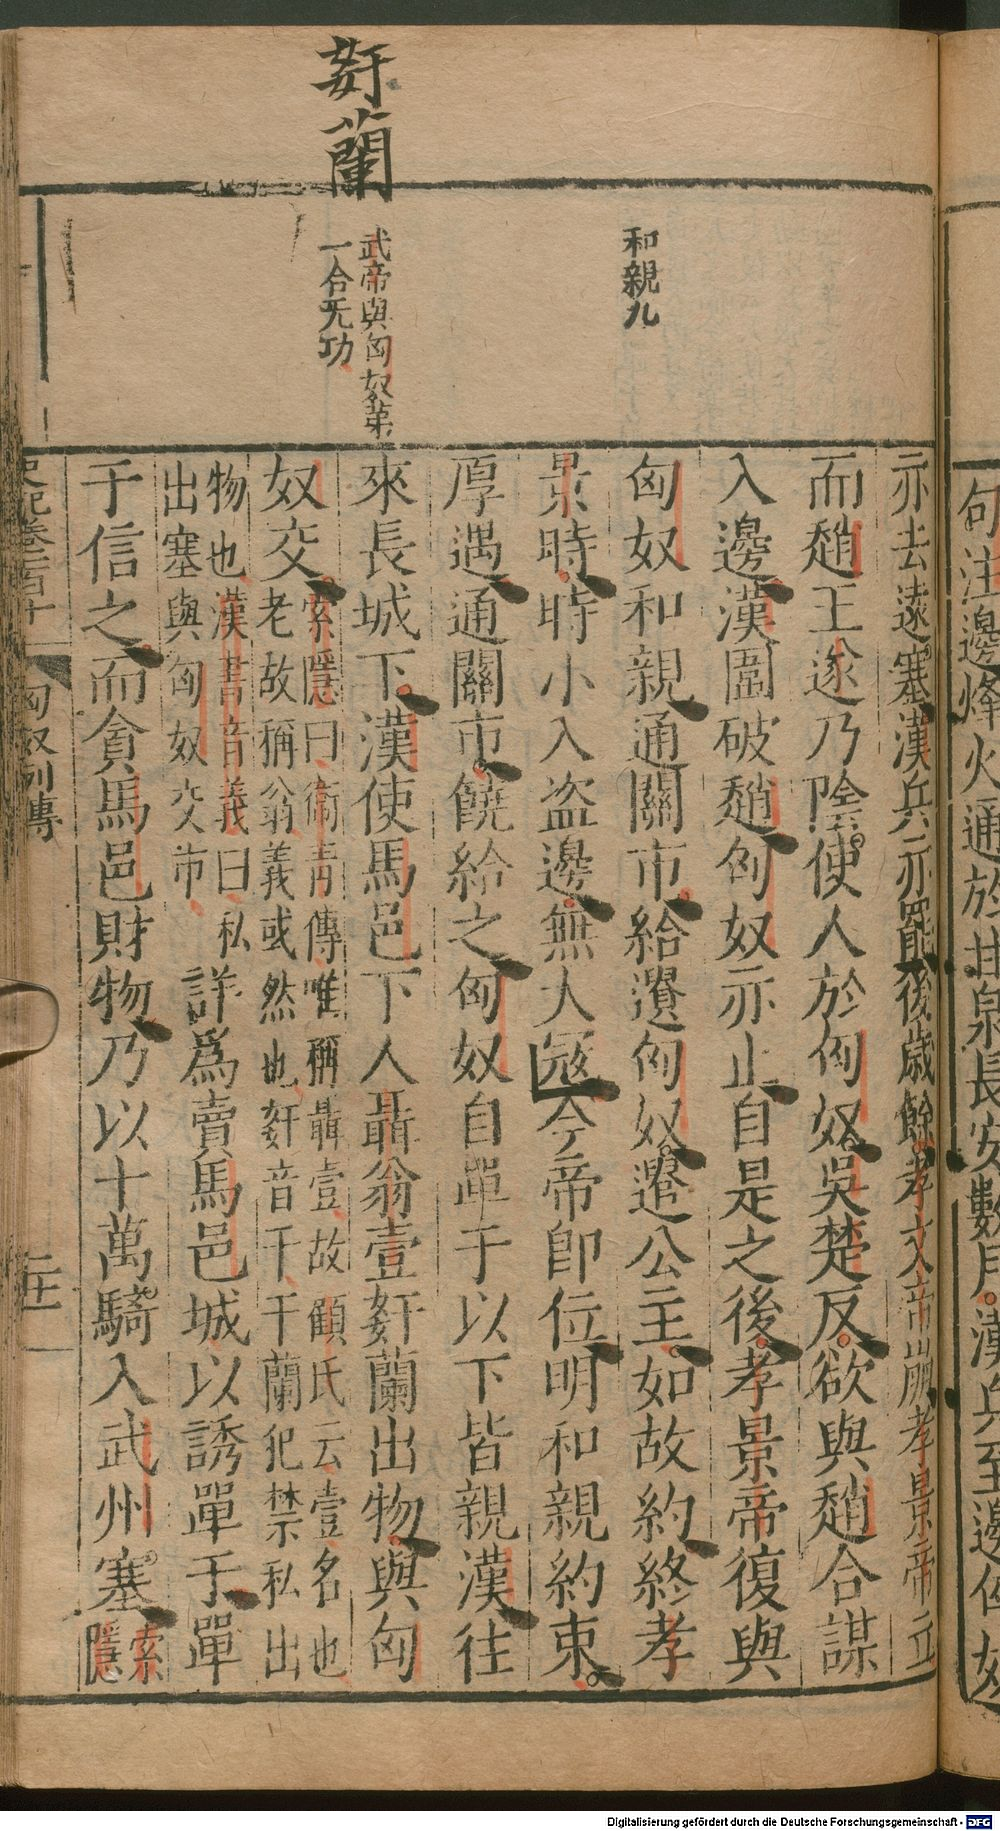 句注邊烽火通於甘泉長安數月漢兵至邊匈奴
亦去遠塞漢兵亦罷後歲餘孝文帝崩孝景帝立
而趙王遂乃陰使人於匈奴吳楚反欲與趙合謀
入邊漢圍破趙匈奴亦止自是之後孝景帝復與
匈奴和親通關市給遺匈奴遣公主如故約終孝
景時時小入盜邊無大寇今帝即位明和親約束
厚遇通關市饒給之匈奴自單于以下皆親漢往
來長城下漢使馬邑下人聶翁壹奸蘭出物與匈
奴交
索隱曰衛青傳唯稱聶壹故顧氏云壹名也
老故稱翁義或然也奸音干干蘭犯禁私出
物也漢書音義曰私
出塞與匈奴交市
詳爲賣馬邑城以誘單于單
于信之而貪馬邑財物乃以十萬騎入武州塞
索
隱
和親九
武帝與匈奴第
一合无功
奸蘭
史記卷一百十
匈奴列傳
二十一
Digitalisierung gefördert durch die Deutsche Forschungsgemeinschaft - DFG